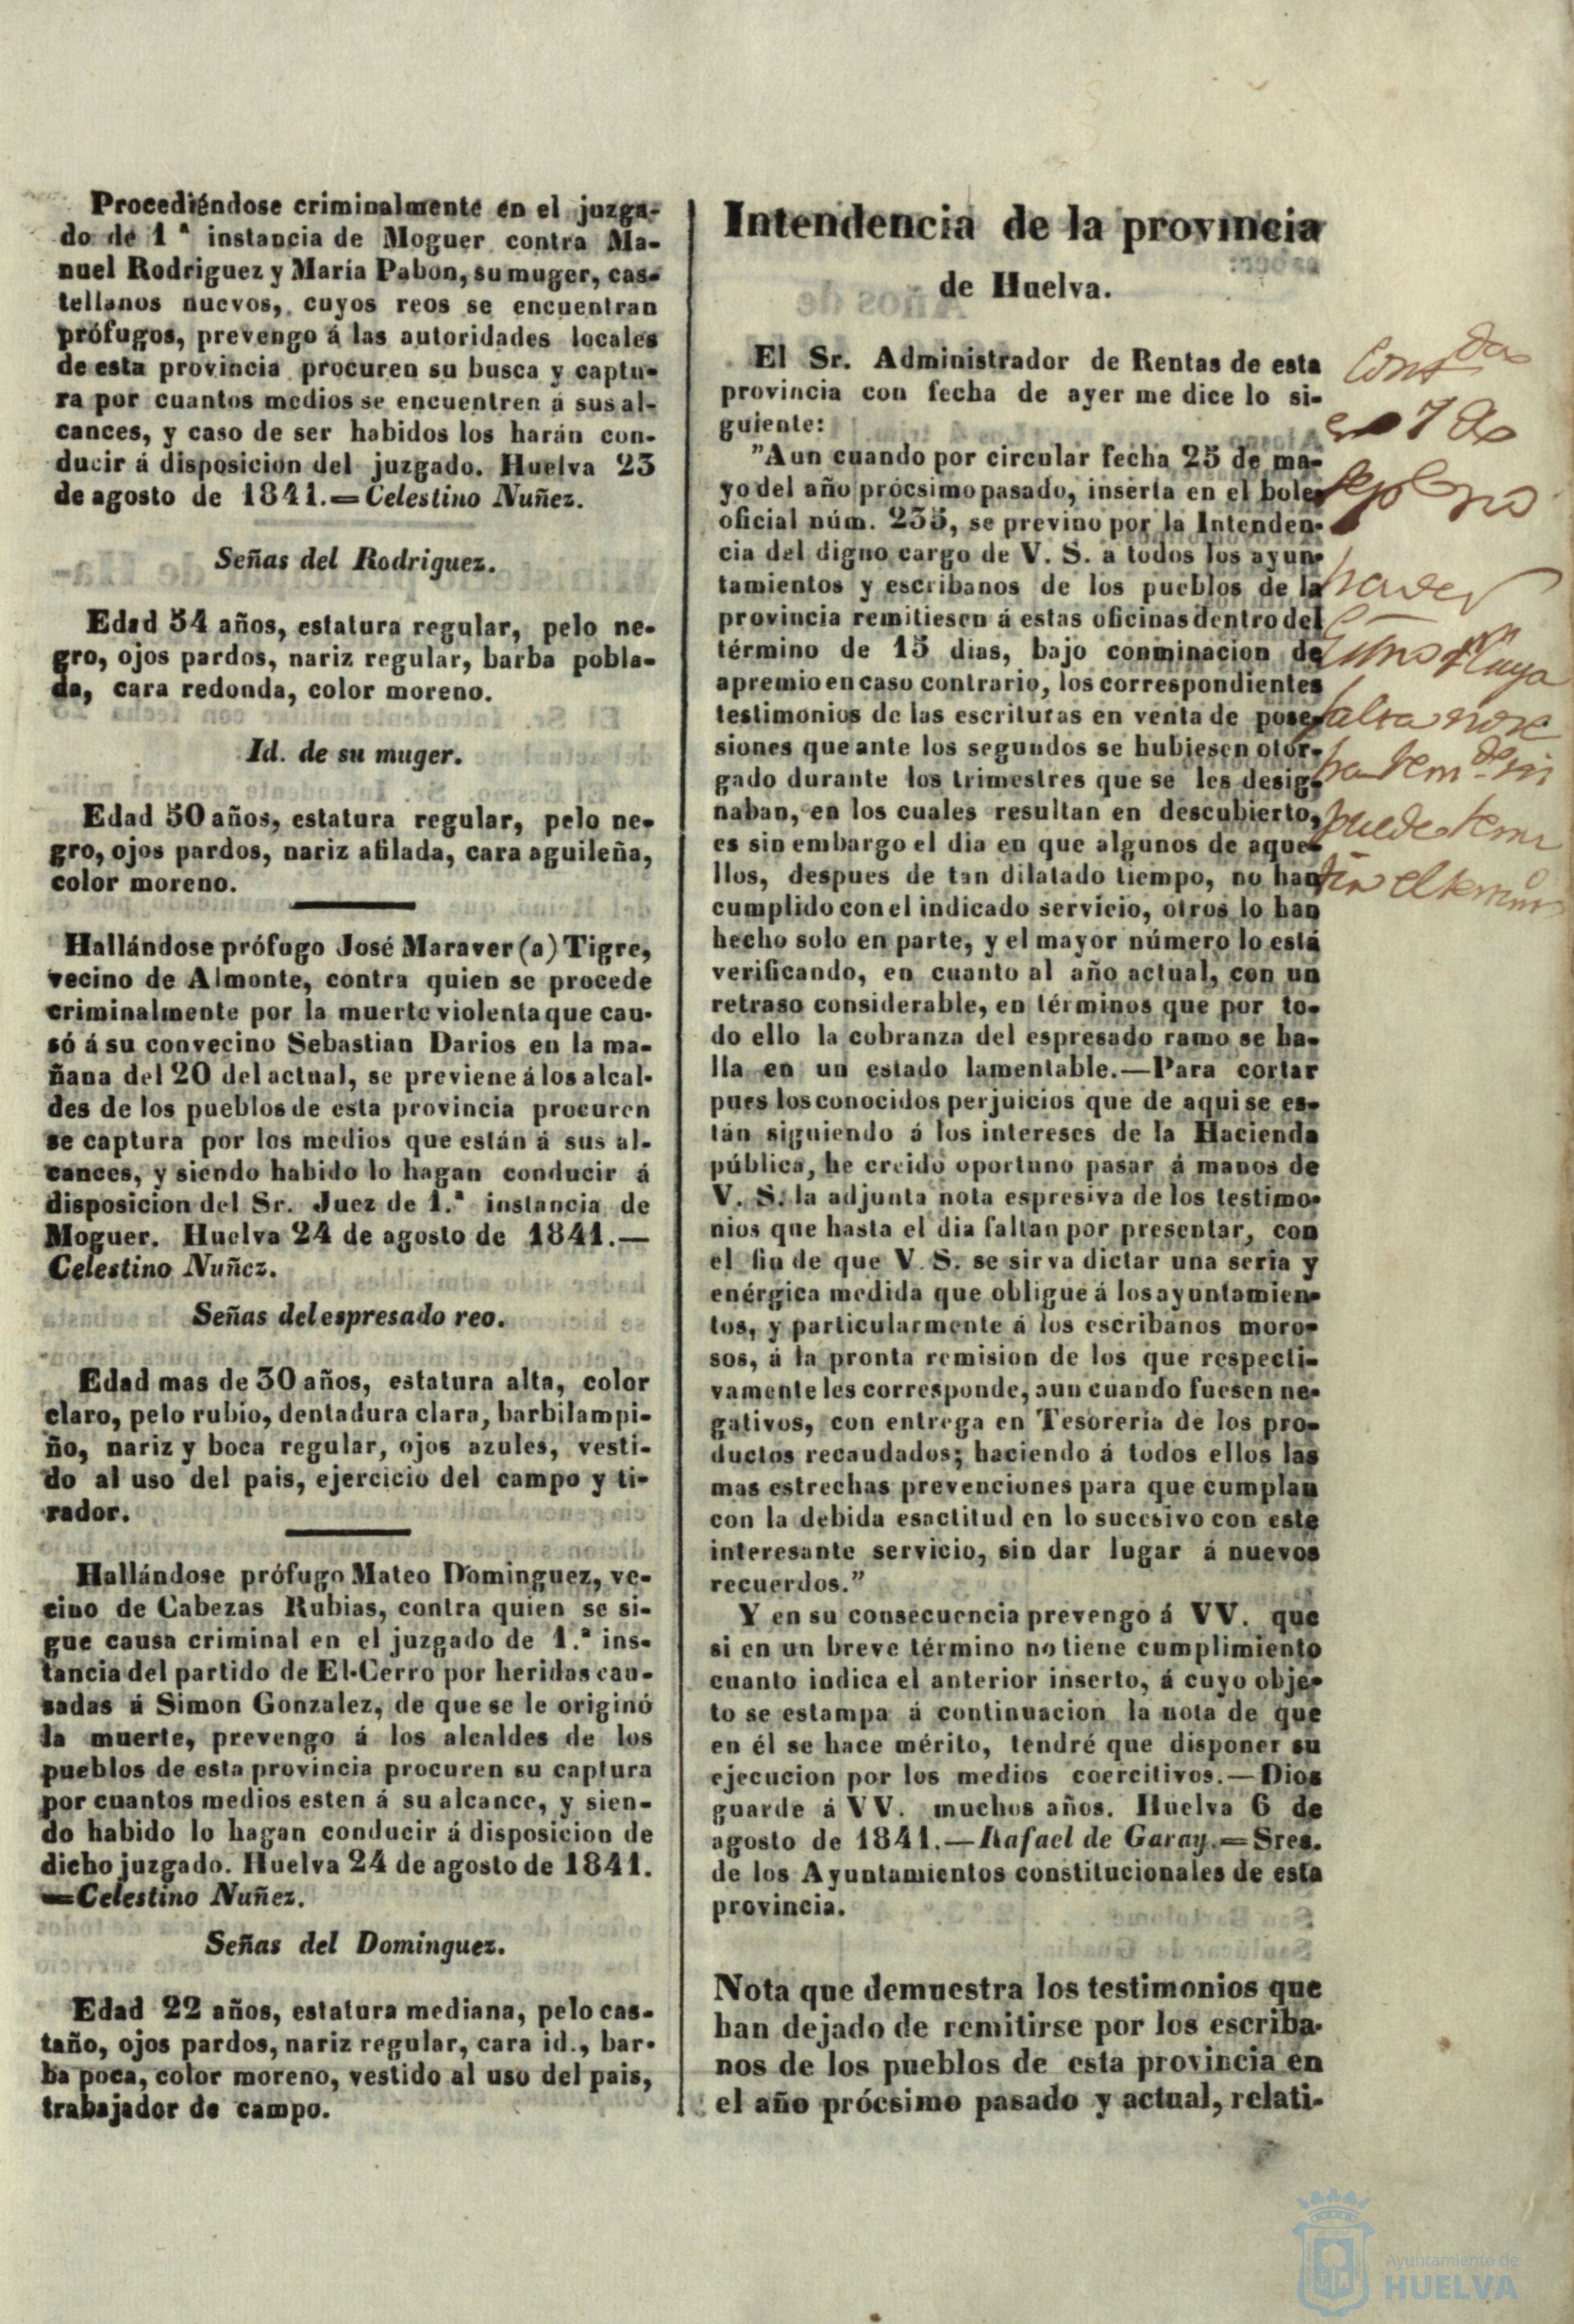 Procediéndose criminalmente en el juzga-
do de 1ª instancia de Moguer contra Ma-
nuel Rodriguez y María Pabon, su muger, cas-
tellanos nuevos, cuyos reos se encuentran
prófugos, prevengo á las autoridades locales
de esta provincia procuren su busca y captu-
ra por cuantos medios se encuentren á sus al-
cances, y caso de ser habidos los harán con-
ducir á disposicion del juzgado. Huelva 23
de agosto de 1841.=Celestino Nuñez.
Señas del Rodriguez.
Edad 54 años, estatura regular, pelo ne-
gro, ojos pardos, nariz regular, barba pobla-
da, cara redonda, color moreno.
Id. de su muger.
Edad 50 años, estatura regular, pelo ne-
gro, ojos pardos, nariz afilada, cara aguileña,
color moreno.
Hallándose prófugo José Maraver (a) Tigre,
vecino de Almonte, contra quien se procede
criminalmente por la muerte violenta que cau-
só á su convecino Sebastian Darios en la ma-
ñana del 20 del actual, se previene á los alcal-
des de los pueblos de esta provincia procuren
se captura por los medios que están á sus al-
cances, y siendo habido lo hagan conducir á
disposicion del Sr. Juez de 1.ª instancia de
Moguer. Huelva 24 de agosto de 1841.—
Celestino Nuñez.
Señas del espresado reo.
Edad mas de 30 años, estatura alta, color
claro, pelo rubio, dentadura clara, barbilampi-
ño, nariz y boca regular, ojos azules, vesti-
do al uso del pais, ejercicio del campo y ti-
rador.
Hallándose prófugo Mateo Dominguez, ve-
cino de Cabezas Rubias, contra quien se si-
gue causa criminal en el juzgado de 1.ª ins-
tancia del partido de El-Cerro por heridas cau-
sadas á Simon Gonzalez, de que se le originó
la muerte, prevengo á los alcaldes de los
pueblos de esta provincia procuren su captura
por cuantos medios esten á su alcance, y sien-
do habido lo hagan conducir á disposicion de
dicho juzgado. Huelva 24 de agosto de 1841.
=Celestino Nuñez.
Señas del Dominguez.
Edad 22 años, estatura mediana, pelo cas-
taño, ojos pardos, nariz regular, cara id., bar-
ba poca, color moreno, vestido al uso del pais,
trabajador de campo.
Intendencia de la provincia
de Huelva.
El Sr. Administrador de Rentas de esta
provincia con fecha de ayer me dice lo si-
guiente:
"Aun cuando por circular fecha 25 de ma-
yo del año prócsimo pasado, inserta en el bole-
oficial núm. 235, se previno por la Intenden-
cia del digno cargo de V. S. a todos los ayun-
tamientos y escribanos de los pueblos de la
provincia remitiesen á estas oficinas dentro del
término de 15 dias, bajo conminacion de
apremio en caso contrario, los correspondientes
testimonios de las escrituras en venta de pose-
siones que ante los segundos se hubiesen otor-
gado durante los trimestres que se les desig-
naban, en los cuales resultan en descubierto,
es sin embargo el dia en que algunos de aque-
llos, despues de tan dilatado tiempo, no han
cumplido con el indicado servicio, otros lo han
hecho solo en parte, y el mayor número lo está
verificando, en cuanto al año actual, con un
retraso considerable, en términos que por to-
do ello la cobranza del espresado ramo se ha-
lla en un estado lamentable.—Para cortar
pues los conocidos perjuicios que de aqui se es-
tán siguiendo á los intereses de la Hacienda
pública, he creido oportuno pasar á manos de
V. S. la adjunta nota espresiva de los testimo-
nios que hasta el dia faltan por presentar, con
el fin de que V. S. se sirva dictar una seria y
enérgica medida que obligue á los ayuntamien-
tos, y particularmente á los escribanos moro-
sos, á la pronta remision de los que respecti-
vamente les corresponde, aun cuando fuesen ne-
gativos, con entrega en Tesoreria de los pro-
ductos recaudados; haciendo á todos ellos las
mas estrechas prevenciones para que cumplan
con la debida esactitud en lo sucesivo con este
interesante servicio, sin dar lugar á nuevos
recuerdos."
Y en su consecuencia prevengo á VV. que
si en un breve término no tiene cumplimiento
cuanto indica el anterior inserto, á cuyo obje-
to se estampa á continuacion la nota de que
en él se hace mérito, tendré que disponer su
ejecucion por los medios coercitivos.—Dios
guarde á VV. muchos años. Huelva 6 de
agosto de 1841.—Rafael de Garay.=Sres.
de los Ayuntamientos constitucionales de esta
provincia.
Nota que demuestra los testimonios que
han dejado de remitirse por los escriba-
nos de los pueblos de esta provincia en
el año prócsimo pasado y actual, relati-
7 de
falta
puede
Ayuntamiento de
HUELVA